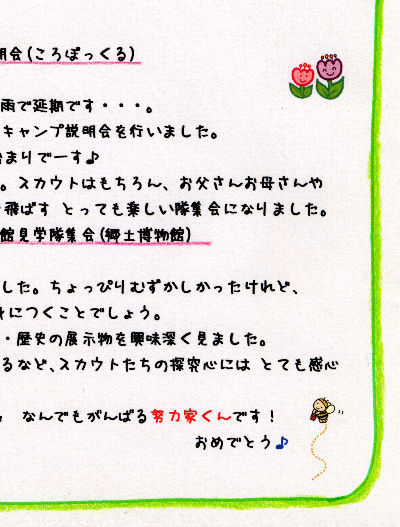 明会(ころぽっくる)
雨で延期です・・・。
キャンプ説明会を行いました。
始まりでーす♪
。スカウトはもちろん、お父さんお母さんや
飛ばす とっても楽しい隊集会になりました。
館見学隊集会(郷土博物館)
した。ちょっぴりむずかしかったけれど、
身につくことでしょう。
・歴史の展示物を興味深く見ました。
るなど、スカウトたちの探究心には とても感心
なんでもがんばる努力家くんです!
おめでとう♪